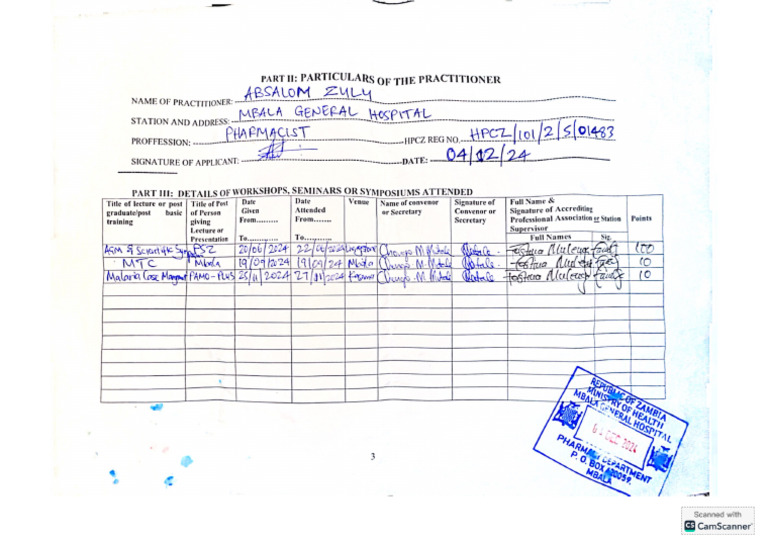 PART II: PARTICULARS OF THE PRACTITIONER
NAME OF PRACTITIONER: ABSALOM ZULU
STATION AND ADDRESS: MBALA GENERAL HOSPITAL
PROFFESSION: PHARMACIST HPCZ REG NO. HPCZ/101/2/5/01483
SIGNATURE OF APPLICANT: DATE: 04/12/24
PART III: DETAILS OF WORKSHOPS, SEMINARS OR SYMPOSIUMS ATTENDED
Title of lecture or post graduate/post basic training
Title of Post of Person giving Lecture or Presentation
Date Given From........ To............
Date Attended From........ To............
Venue
Name of convenor or Secretary
Signature of Convenor or Secretary
Full Name & Signature of Accrediting Professional Association or Station Supervisor
Full Names Sig.
Points
AGM & Scientific PSZ 20/06/2024 22/06/2024 100
MTC Mbala 19/09/2024 19/09/24 Mbala 10
Malaria Case PAMO-PLUS 25/11/2024 27/11/2024 Kasama 10
REPUBLIC OF ZAMBIA
MINISTRY OF HEALTH
MBALA GENERAL HOSPITAL
DEC 2024
PHARMACY DEPARTMENT
P. O. BOX 420059,
MBALA
3
Scanned with
CS CamScanner